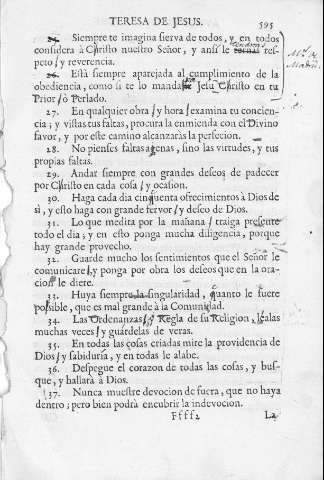 TERESA DE JESUS.
595
25. Siempre te imagina sierva de todos, y en todos
considera à Christo nuestro Señor, y ansi le tendras res-
peto / y reverencia.
26. Està siempre aparejada al cumplimiento de la
obediencia, como si te lo mandasse Jesu Christo en tu
Prior / ò Perlado.
27. En qualquier obra / y hora / examina tu concien-
cia; y vistas tus faltas, procura la enmienda con el Divino
favor, y por este camino alcanzaràs la perfecion.
28. No pienses faltas agenas, sino las virtudes, y tus
propias faltas.
29. Andar siempre con grandes deseos de padecer
por Christo en cada cosa / y ocasion.
30. Haga cada dia cinquenta ofrecimientos à Dios de
sì, y esto haga con grande fervor / y deseo de Dios.
31. Lo que medita por la mañana / traiga presente
todo el dia; y en esto ponga mucha diligencia, porque
hay grande provecho.
32. Guarde mucho los sentimientos que el Señor le
comunicare /, y ponga por obra los deseos que en la ora-
cion le diere.
33. Huya siempre la singularidad, quanto le fuere
possible, que es mal grande à la Comunidad.
34. Las Ordenanzas / y Regla de su Religion, lealas
muchas veces / y guardelas de veras.
35. En todas las cosas criadas mire la providencia de
Dios / y sabiduría, y en todas le alabe.
36. Despegue el corazon de todas las cosas, y bus-
que, y hallarà à Dios.
37. Nunca muestre devocion de fuera, que no haya
dentro; pero bien podrà encubrir la indevocion.
Ffff2
La